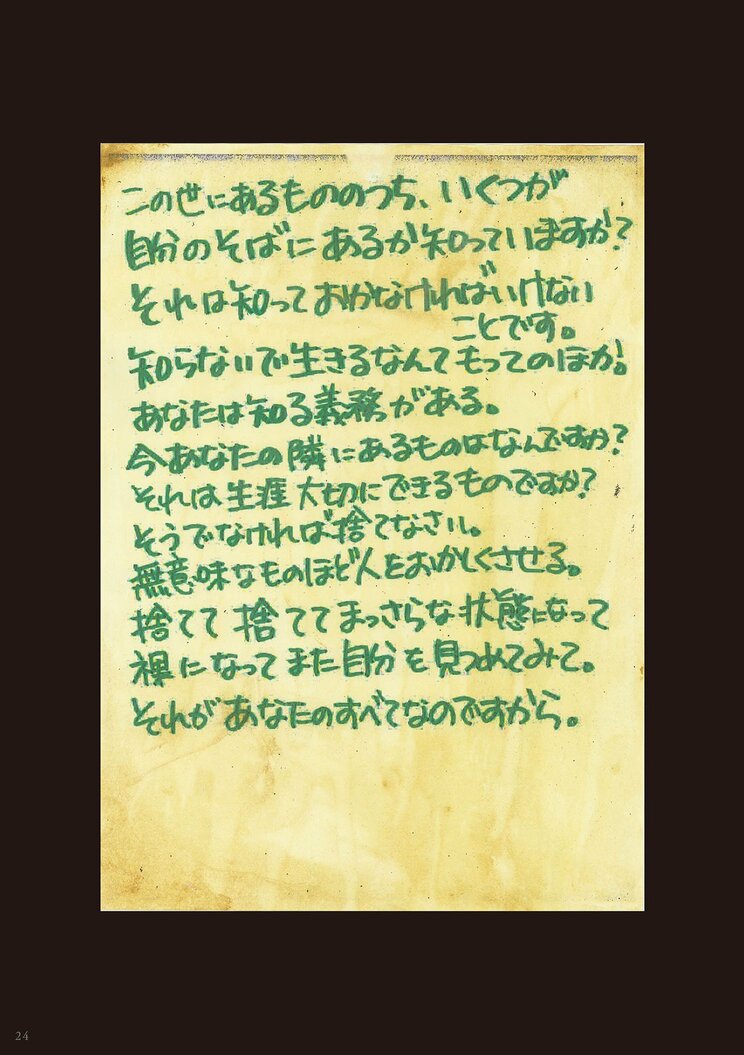 この世にあるもののうち、いくつが
自分のそばにあるか知っていますか?
それは知っておかなければいけない
ことです。
知らないで生きるなんてもってのほか!
あなたは知る義務がある。
今あなたの隣にあるものはなんですか?
それは生涯大切にできるものですか?
そうでなければ捨てなさい。
無意味なものほど人をおかしくさせる。
捨てて捨ててまっさらな状態になって
裸になってまた自分を見つめてみて。
それがあなたのすべてなのですから。
24